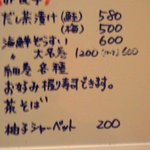 だし茶漬け(鮭) 580
(梅) 500
海鮮ぞうすい 600
〃 大名巻 1200
細巻 各種
お好み握り寿司できます。
茶そば
柚子シャーベット 200